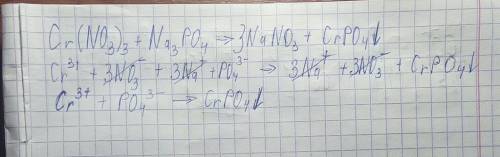 Cr(NO₃)₃ + Na₃PO₄ → 3NaNO₃ + CrPO₄↓
Cr³⁺ + 3NO₃⁻ + 3Na⁺ + PO₄³⁻ → 3Na⁺ + 3NO₃⁻ + CrPO₄↓
Cr³⁺ + PO₄³⁻ → CrPO₄↓